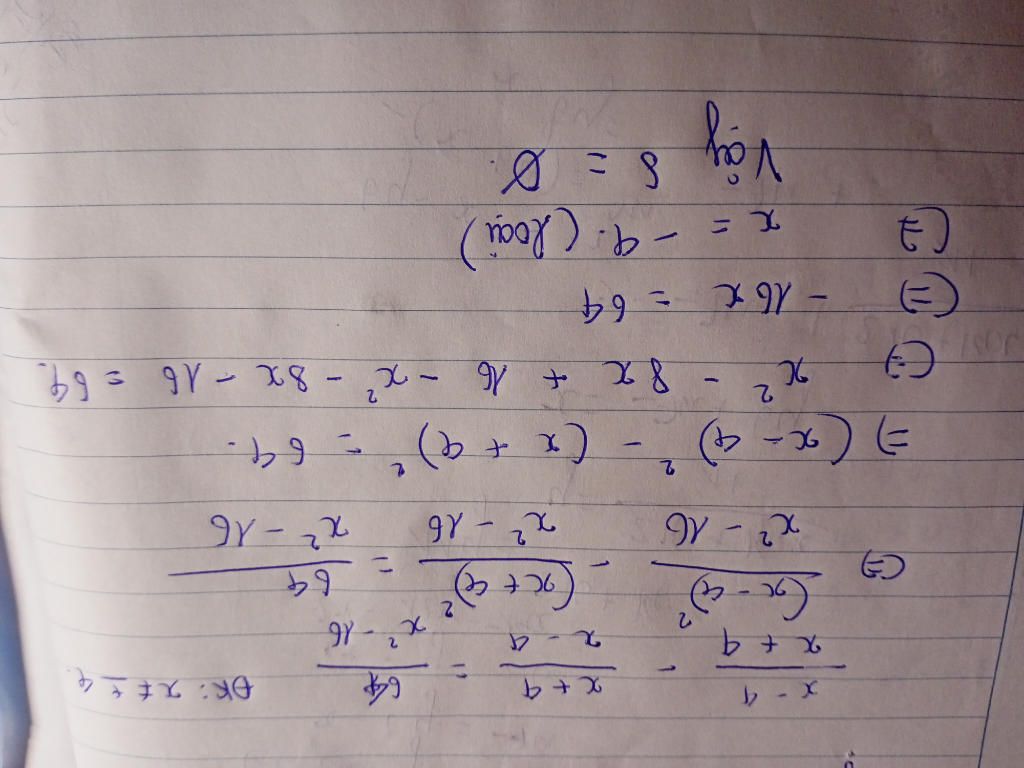 x - 4 / x + 4 - x + 4 / x - 4 = 64 / x² - 16 ĐK: x ≠ ± 4.
(=) (x - 4)² / x² - 16 - (x + 4)² / x² - 16 = 64 / x² - 16
=) (x - 4)² - (x + 4)² = 64.
(=) x² - 8x + 16 - x² - 8x - 16 = 64.
(=) - 16x = 64
(=) x = - 4. (loại)
Vậy S = Ø.